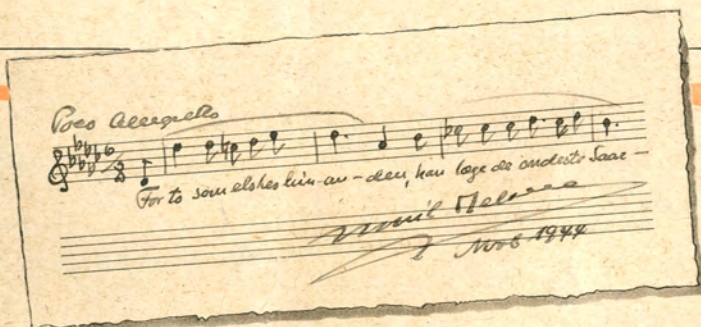 Poco allegretto
6/8
For to som elskes hin-an-den, kan læge de ondeste Saar-
Emil
1944